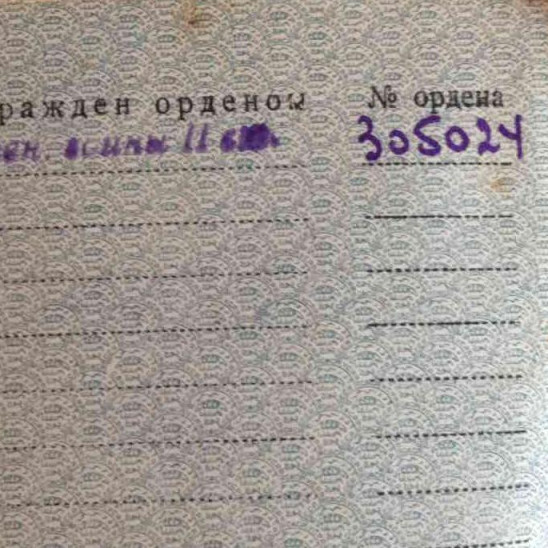 ражден орденом № ордена
ен. войны II ст. 305024